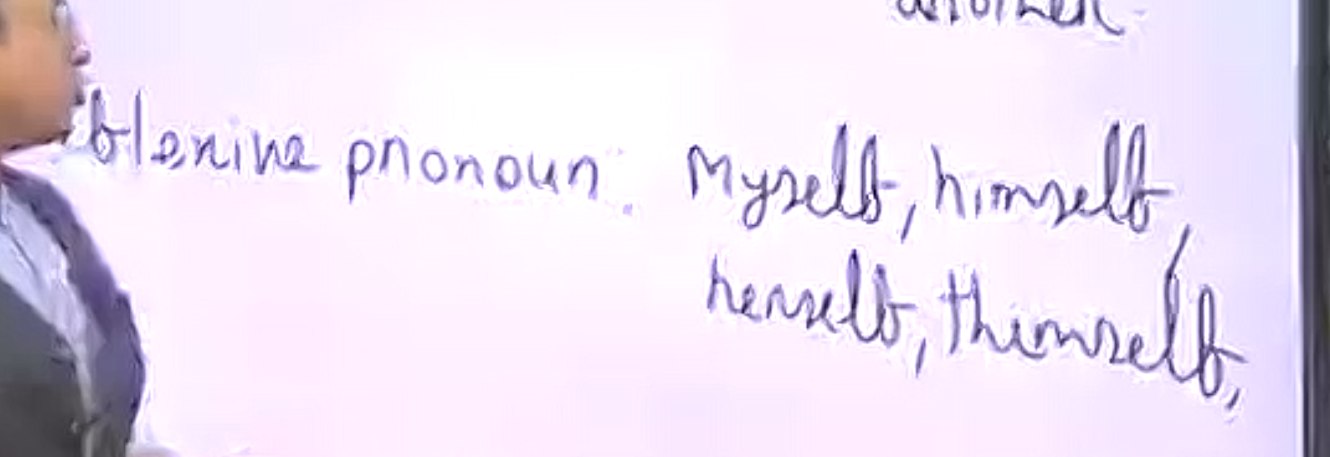 flexive pronoun: Myself, himself,
herself, thimself,